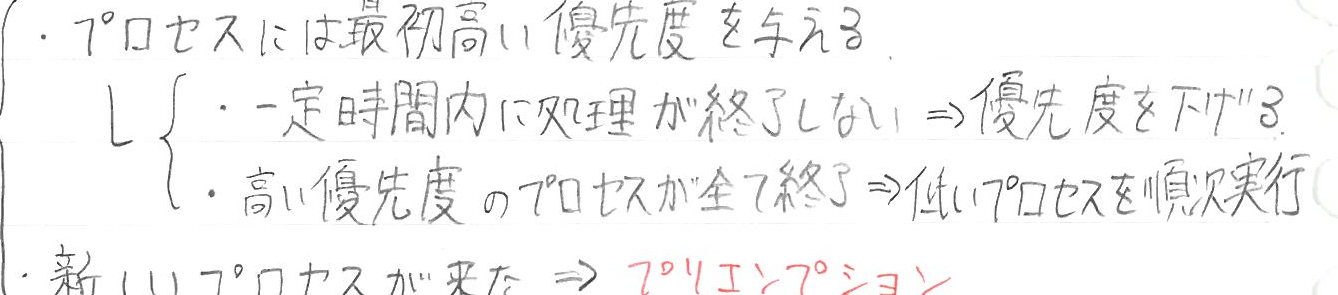 ・プロセスには最初高い優先度を与える
・一定時間内に処理が終了しない ⇒ 優先度を下げる.
・高い優先度のプロセスが全て終了 ⇒ 低いプロセスを順次実行
・新しいプロセスが来た ⇒ プリエンプション